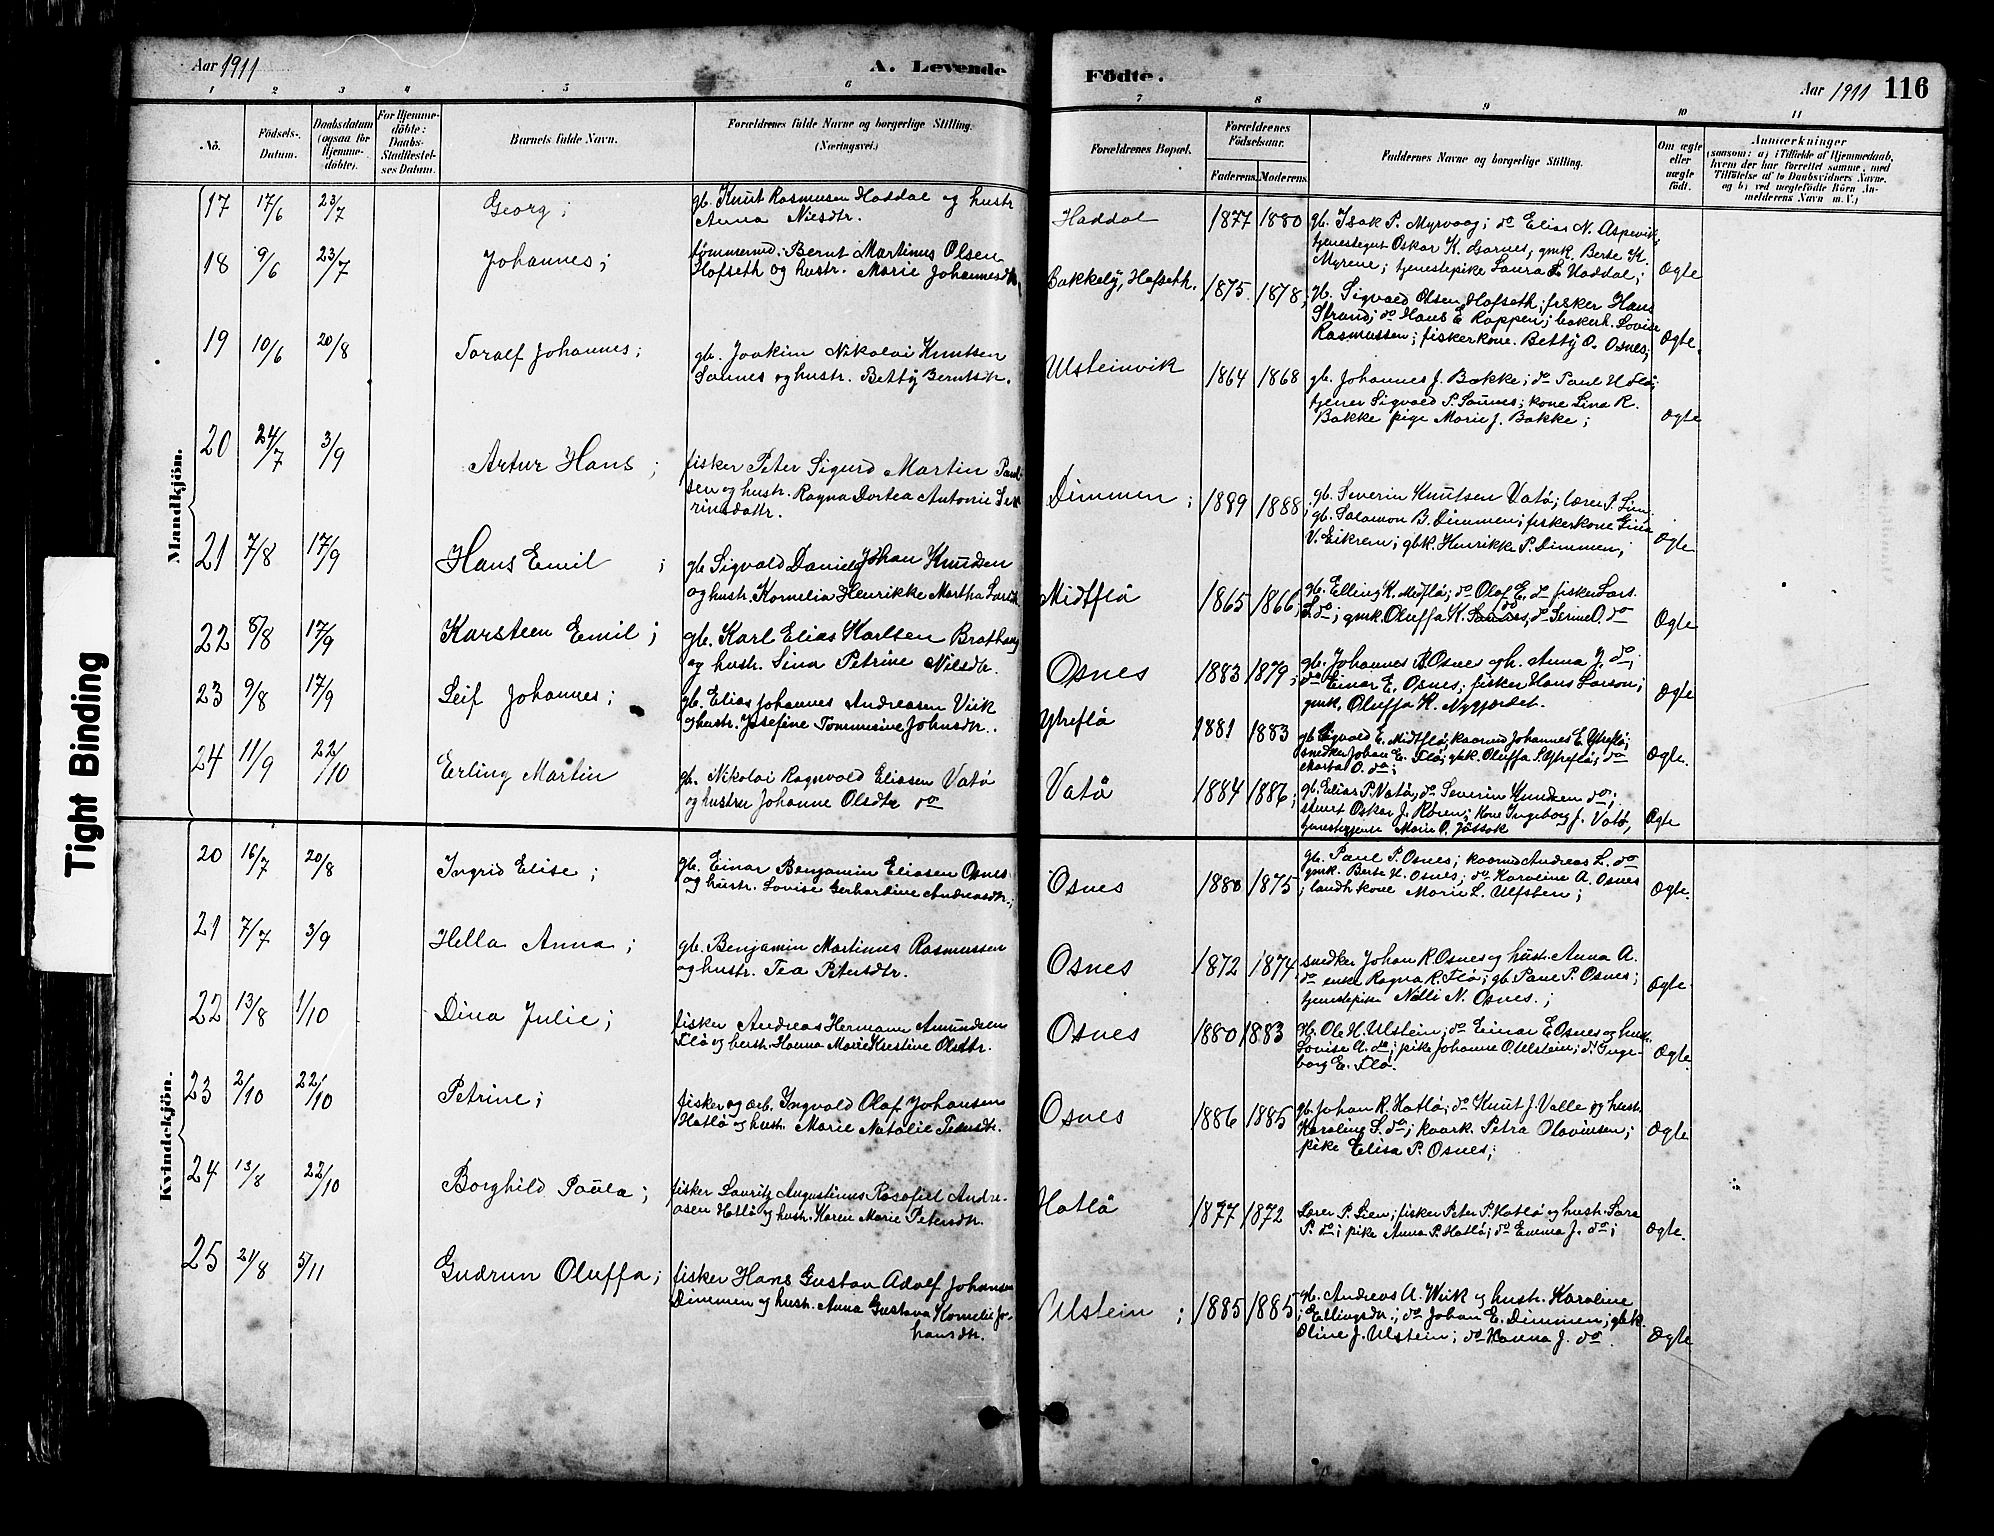 Aar 1911
A. Levende
Födte.
Aar 1911
116
1 2 3 4 5 6 7 8 9 10 11
No.
Födsels-
Datum.
Daabsdatum
(ogsaa for
Hjemme-
döbte).
For Hjemme-
döbte:
Daabs-
Stadfæstel-
ses Datum.
Barnets fulde Navn.
Forældrenes fulde Navne og borgerlige Stilling.
(Næringsvei.)
Forældrenes Bopæl.
Forældrenes
Födselsaar.
Faderens. Moderens.
Faddernes Navne og borgerlige Stilling.
Om ægte
eller
uægte
födt.
Anmærkninger
(saasom: a) i Tilfælde af Hjemmedaab,
hvem der har forrettet samme, med
Tilföielse af to Daabsvidners Navne,
og b) ved uægtefödte Börn An-
melderens Navn m. V.)
Mandkjön.
17 17/6 23/7 Georg;
gb. Knut Rasmussen Haddal og hustr
Anna Nilsdtr.
Haddal 1877 1880
gb. Isak P. Myrvaag; do Elias N. Aspevik;
tjenestegut Oskar K. Garnes, gmk. Berte K.
Myrene; tjenestepike Laura L. Haddal;
Ægte
18 9/6 23/7 Johannes;
tömmermd. Bernt Martinus Olsen
Hofseth og hustr. Marie Johannesdtr
Bakkely, Hofseth. 1875 1878
gb. Sigvald Olsen Hofseth; fisker Hans
Strand; do Hans E. Koppen; bakerh. Lovise
Rasmussen; fiskerkone. Betty O. Osnes;
Ægte.
19 10/6 20/8 Toralf Johannes;
gb. Joakim Nikolai Knutsen
Saunes og hustr. Betty Berntsdtr.
Ulsteinvik 1864 1868
gb. Johannes J. Bakke; do Paul H. Flø;
tjener Sigvald P. Saunes; kone Lina R.
Bakke pige Marie J. Bakke;
Ægte
20 24/7 3/9 Artur Hans;
fisker Peter Sigurd Martin Paul-
sen og hustr. Ragna Dortea Antonie Seve
rinsdattr.
Dimmen; 1889 1888
gb. Severin Knutsen Vatø; lærer P. Lien;
gb. Salamon B. Dimmen; fiskerkone Gina
V. Eikrem; gbk. Henrikke P. Dimmen;
Ægte
21 7/8 17/9 Hans Emil;
gb Sigvald Daniel Johan Knudsen
og hustr. Kornelia Henrikke Martha Larsdtr
Midtflø 1865 1866
gb. Elling K. Midtflø; do Olaf E. do fisker Lars
L. do; gmk. Oluffa K. Sandnes, do Serine O. do
Ægte
22 8/8 17/9 Karsteen Emil;
gb. Karl Elias Karlsen Brathaug
og hustr. Lina Petrine Nilsdtr.
Osnes 1883 1879
gb. Johannes R. Osnes og h. Anna J. do;
do Einar E. Osnes; fisker Hans Larson;
gmk. Oluffa H. Nygjerdet.
Ægte
23 9/8 17/9 Leif Johannes;
gb. Elias Johannes Andreasen Viik
og hustr. Josefine Tommesine Johnsdtr.
Ytreflø 1881 1883
gb Sigvald E. Midtflø; kaarmd Johannes E. Ytreflø;
snedker Johan E. Flø; gbk. Oluffa S. Ytreflø; do
Marta O. do;
Ægte.
24 11/9 22/10 Erling Martin
gb. Nikolai Ragnvald Eliasen Vatø
og hustru Johanne Olsdtr do
Vatø 1884 1886
gb. Elias P. Vatø, do Severin Knudsen do;
stuert Oskar J. Røren; kone Ingeborg J. Vatø,
tjenestepike Marie O. Jøssok
Ægte
Kvindekjön.
20 16/7 20/8 Ingrid Elise;
gb. Einar Benjamin Eliasen Osnes
og hustr. Lovise Gerhardine Andreasdtr.;
Osnes 1880 1875
gb. Paul P. Osnes; kaarmd Andreas L. do
gmk. Berte H. Osnes; do Karoline A. Osnes
; landh. kone Marie L. Ulfsten;
Ægte.
21 7/7 3/9 Hella Anna;
gb. Benjamin Martines Rasmussen
og hustr. Tea Petersdtr.
Osnes 1872 1874
snedker Johan R. Osnes og hustr. Anna A.
do enke Ragna R. Flø; gb Paul P. Osnes;
tjenestepike Nelli N. Osnes.;
Ægte.
22 13/8 1/10 Dina Julie;
fisker Andreas Hermann Amundsen
Flø og hustr. Hanna Marie Kristine Olsdtr.
Osnes 1880 1883
gb. Ole H. Ulstein; do Einar E. Osnes og hustr.
Lovise A. do; pike Johanne O. Ulstein; do Inge-
borg E. Flø.
Ægte.
23 2/10 22/10 Petrine;
fisker og arb. Ingvald Olaf Johansen
Hatlø og hustr. Marie Natalie Petersdtr.
Osnes 1886 1885
gb. Johan R. Hatlø; do Knut J. Valle og hustr.
Karoline S. do; kaark. Petra Olavinsen;
pike Elisa P. Osnes;
Ægte
24 13/8 22/10 Borghild Paula;
fisker Lauritz Augustinus Rasafiel Andre-
asen Hatlø og hustr. Karen Marie Petersdtr.
Hatlø 1877 1872
Lærer P. Lien; fisker Peter P. Hatlø og hustr. Sara
P. do; pike Anna P. Hatlø; do Emma J. do;
Ægte.
25 21/8 5/11 Gudrun Oluffa;
fisker Hans Gustav Adolf Johansen
Dimmen og hustr. Anna Gustava Kornelie Jo-
hansdtr.
Ulstein; 1885 1885
gb. Andreas A. Wiik og hustr. Karoline
Ellingsdtr.; do Johan E. Dimmen; gbk.
Oline J. Ulstein; do Hanna J. do
Ægte
Tight Binding